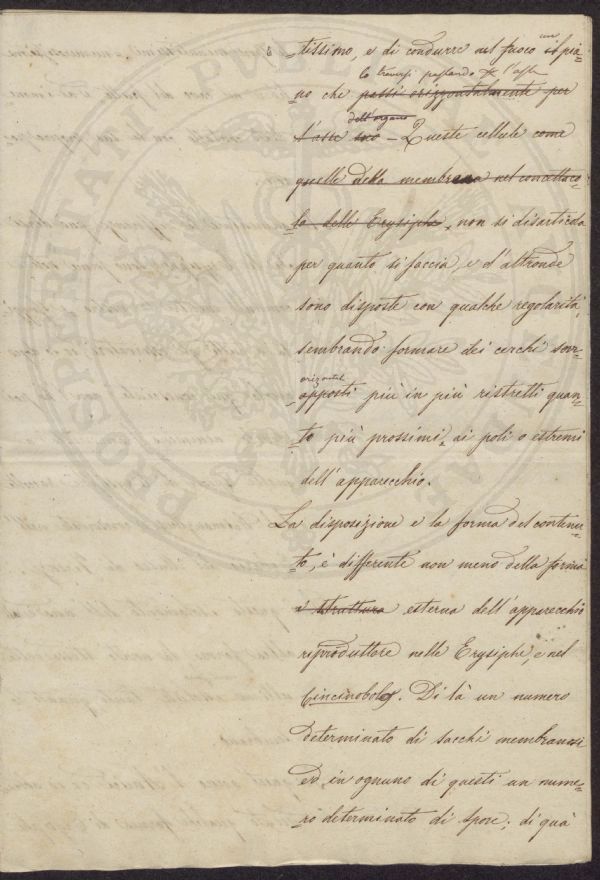 tissimo, e di condurre nel fuoco un il pia-
lo traversi passando per l'asse
no che passi orizzontalmente per
dell'organo
l'asse suo - Queste cellule come
quelle della membrana nel concettaco-
lo delli Erysiphe, non si disarticola
per quanto si faccia, e d'altronde
sono disposte con qualche regolarità,
sembrando formare dei cerchi sovr-
orizontali
apposti più in più ristretti quan-
to più prossimi ai poli o estremi
dell'apparecchio.
La disposizione e la forma del contenu-
to, è differente non meno della forma
e struttura esterna dell'apparecchio
riproduttore nelle Erysiphe, e nel
Cincinobolo. Di là un numero
determinato di sacchi membranosi
ed in ognuno di questi un nume-
ro determinato di spore; di quà
PROSPERITATI PUBLICAE